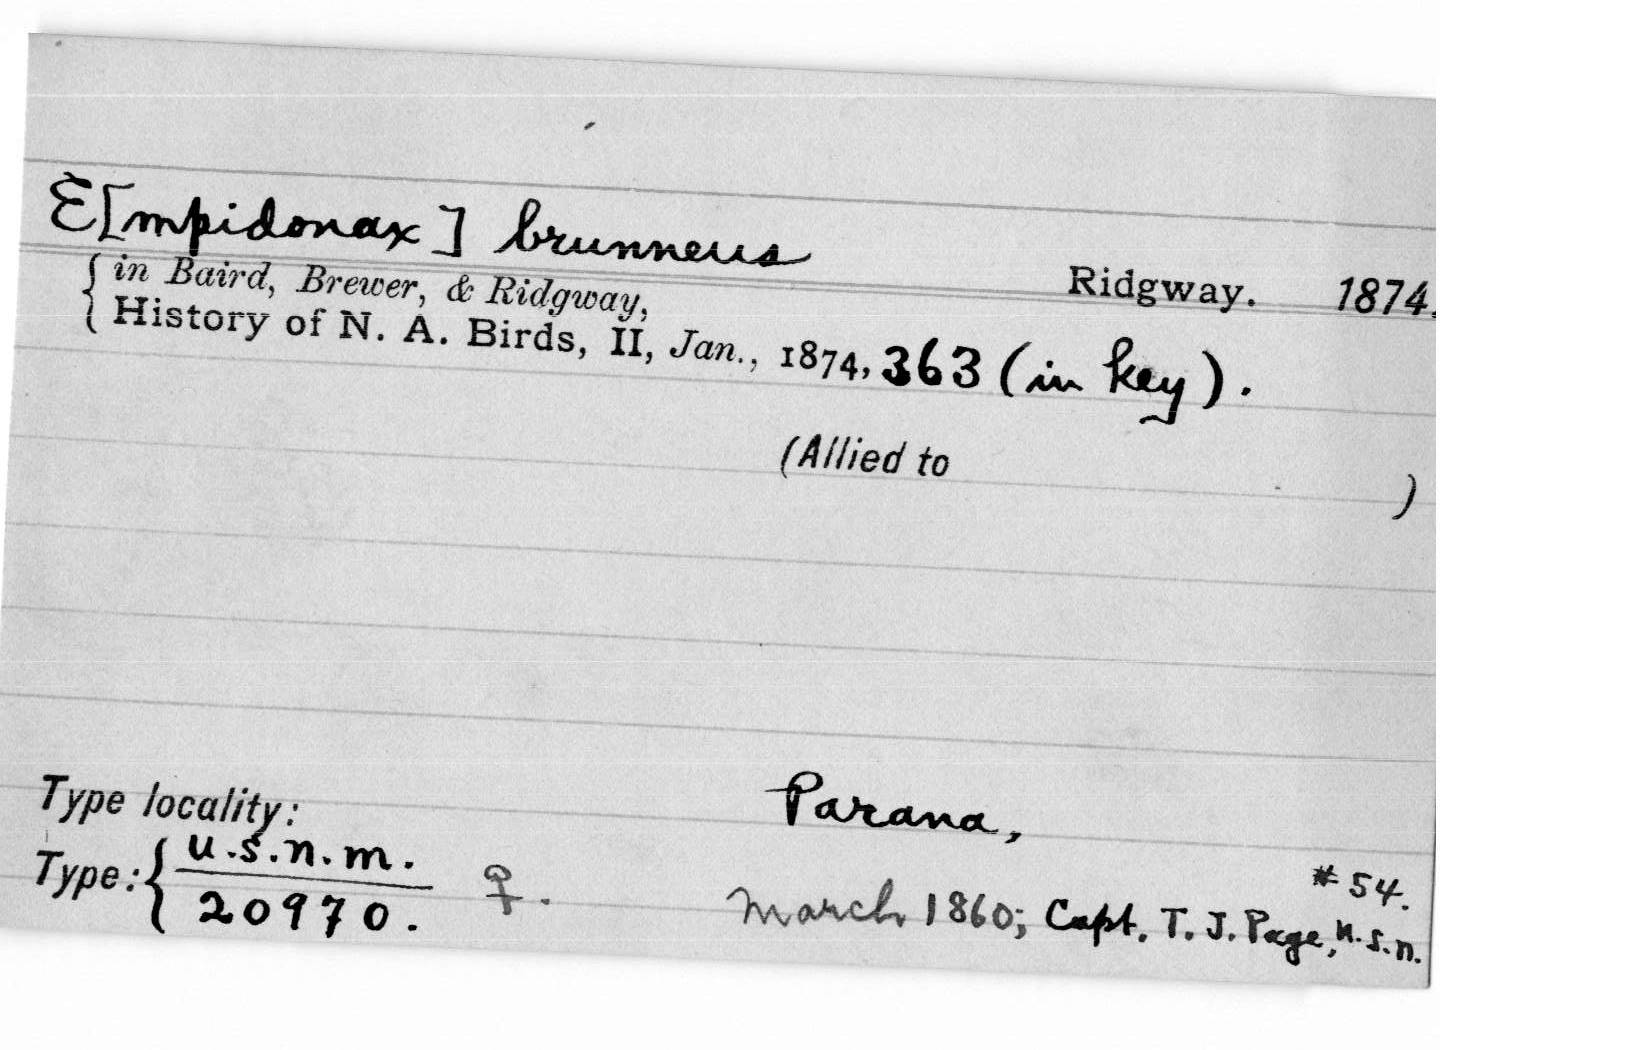 E[mpidonax] brunneus
Ridgway. 1874.
{in Baird, Brewer, & Ridgway,
History of N. A. Birds, II, Jan., 1874, 363 (in key).
(Allied to )
Type locality: Parana,
Type: { U.S.N.M. #54.
20970. ♀. March 1860; Capt. T. J. Page, U.S.N.